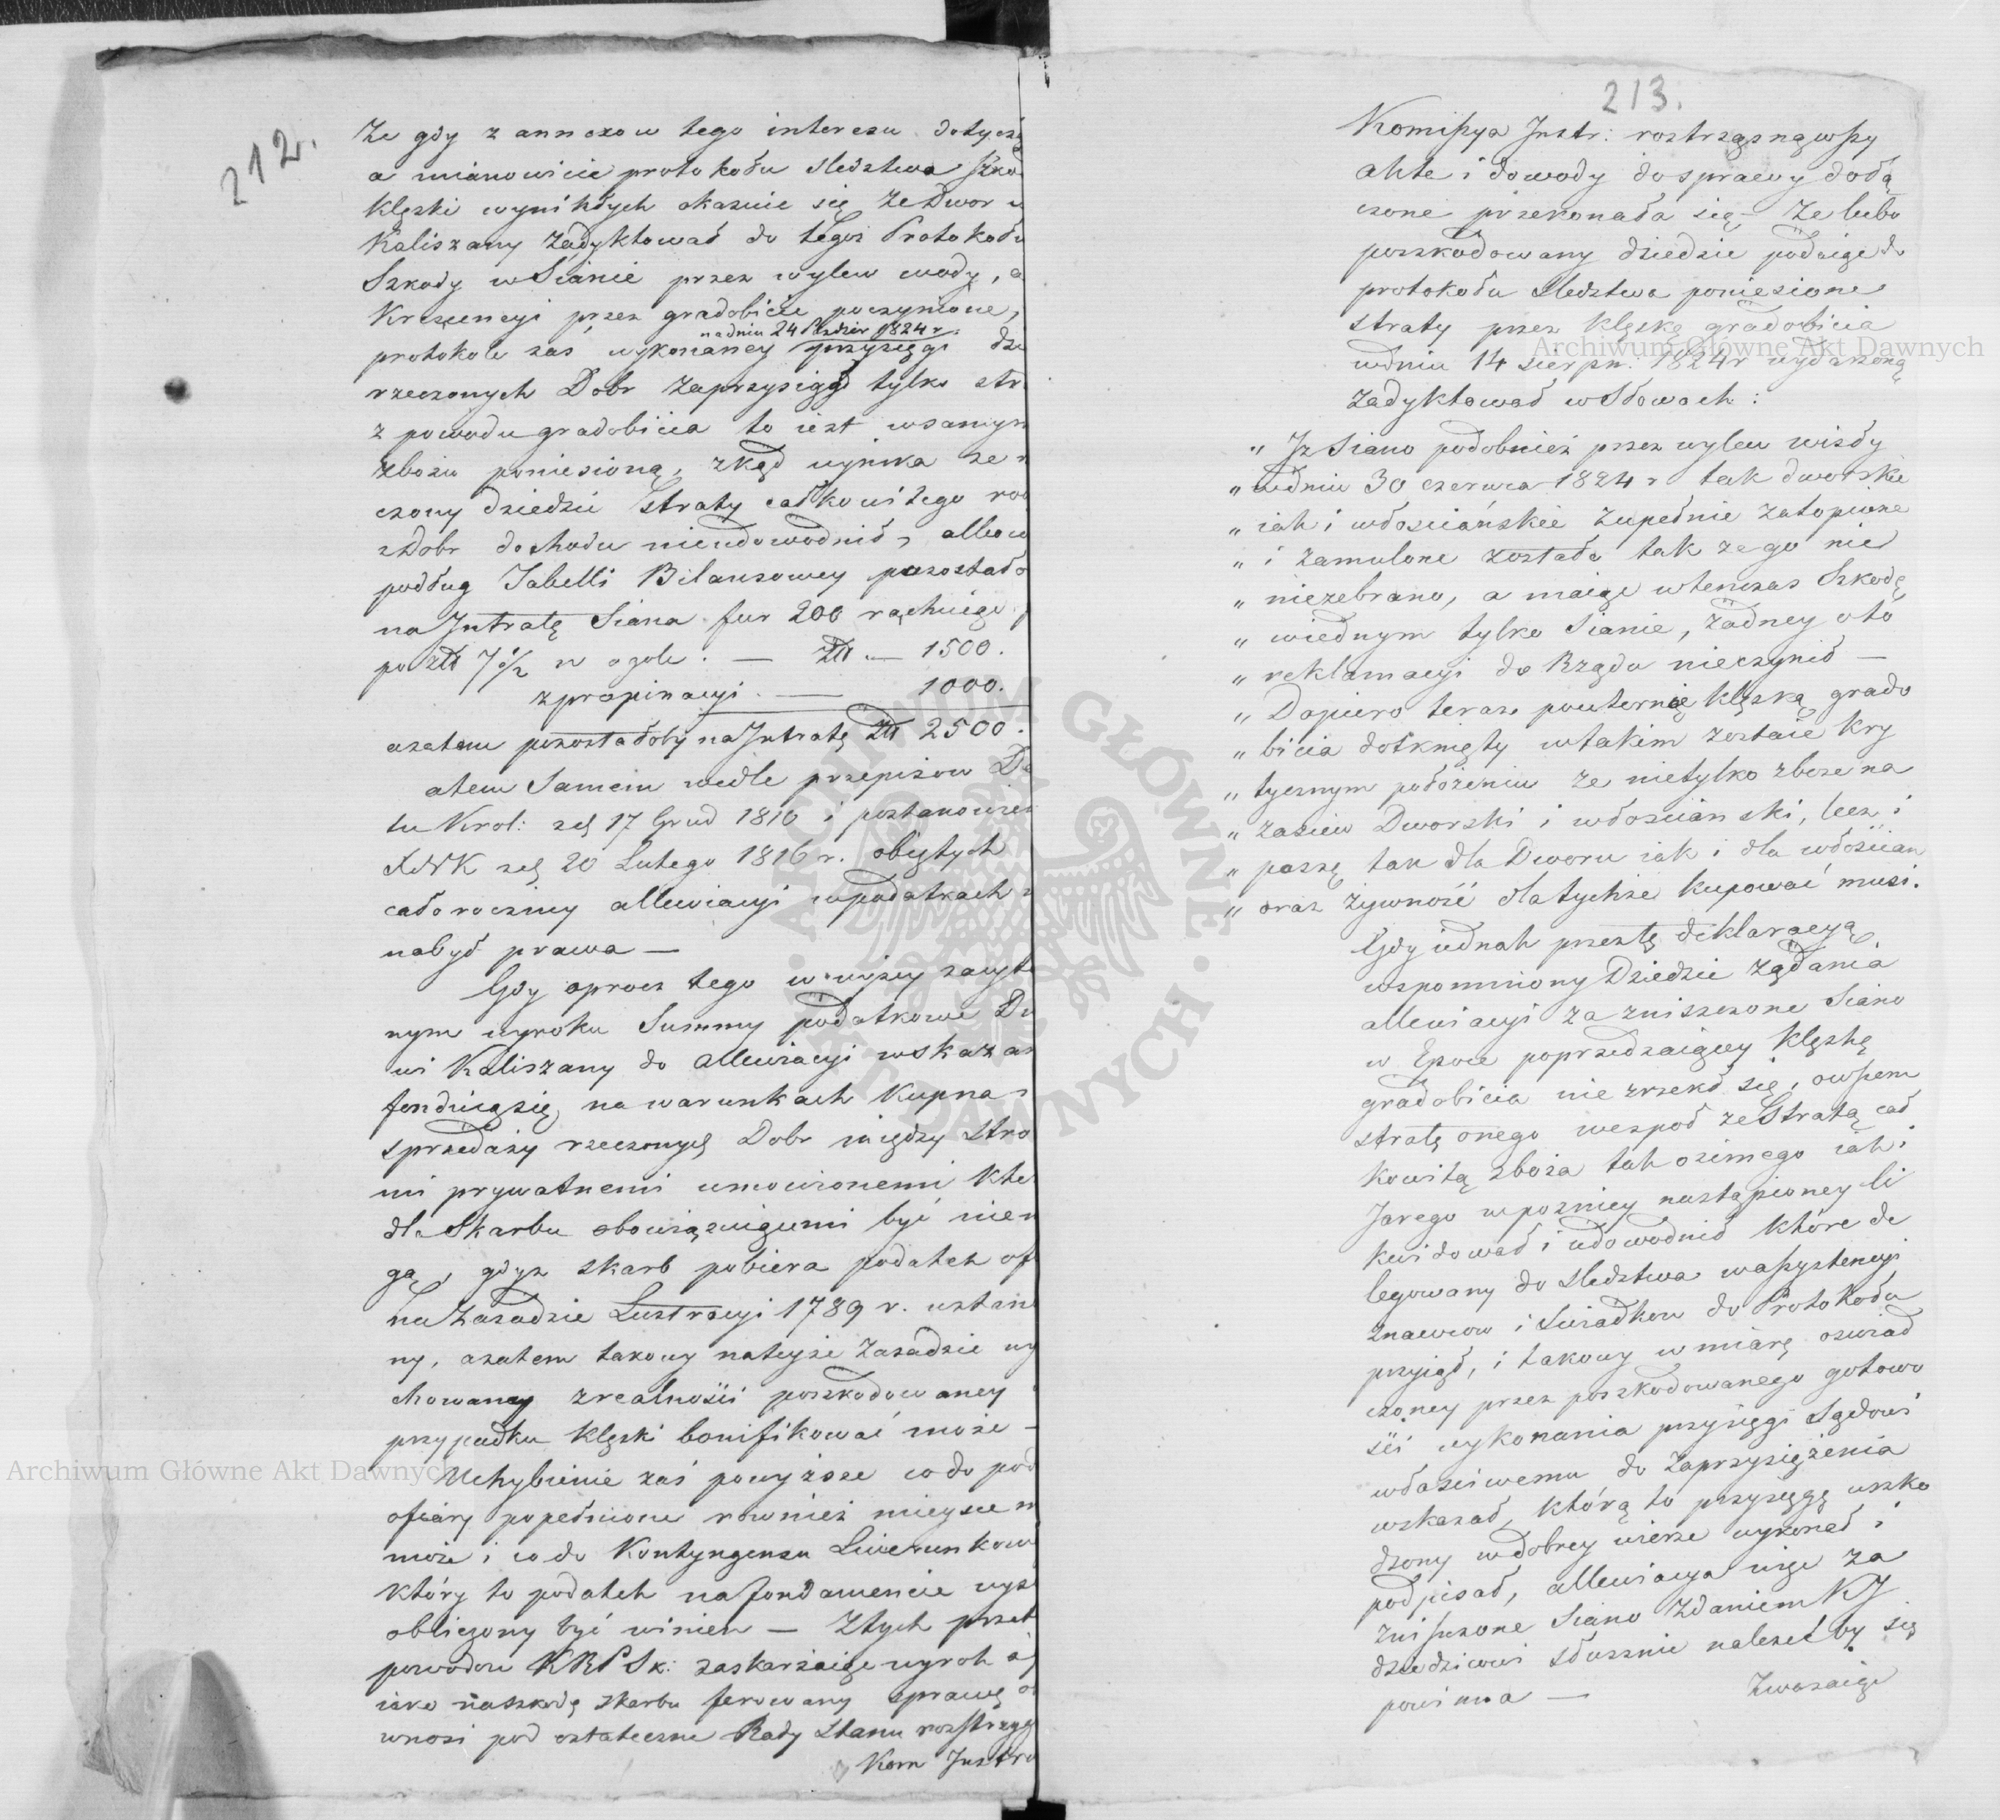 212.
Ze gdy z annexow tego interesu dotyczą
a mianowicie protokołu sledztwa szko
klęski wynikłych okazuie się ze Dwor w
Kaliszany zadyktował do tegoż Protokołu
Szkody w Sianie przez wylew wody, a
Krescencyi przez gradobicie poczynione,
na dniu 24 Paździer 1824 r.
protokole zas wykonaney przysięgi dzie
rzeczonych Dobr zaprzysiągł tylko str
z powodu gradobicia to iest w samym
zbożu poniesioną, zkąd wynika ze r
czony dziedzic straty całkowitego roc
z Dobr dochodu nieudowodnił, albow
podług Tabelli Bilansowey pozostało
na Intratę Siana fur 200 rachuiąc
po złł 7 1/2 w ogole . — Złł — 1500.
z propinacyi . — 1000.
azatem pozostałoby na Intratę Złł 2500.
atem Samem wedle przepisow De
tu Krol: z dͬ 17 Grud 1816 i postanowien
XNK z dͬ 20 Lutego 1816 r. obiętych
całoroczney allewiacyi w podatkach n
nabył prawa —
Gdy oprocz tego w wyzey zacyto
nym wyroku Summy podatkowe Dw
wi Kaliszany do allewiacyi wskazan
funduią się na warunkach Kupna i
sprzedaży rzeczonych Dobr między stro
mi prywatnemi umowionemi któr
dla Skarbu obowiązuiącemi być niem
gą, gdyz skarb pobiera podatek of
na zasadzie Lustracyi 1789 r. ustano
ny, azatem takowy na teyże Zasadzie wy
chowaney z realności poszkodowaney
przypadku klęski bonifikować może —
Uchybienie zaś powyższe co do pod
ofiary popełnione rownież mieysce m
może i co do Kontyngensu Liwerunkow
który to podatek na fundamencie wyz
obliczony być winien — Z tych przet
powodow KRPSk: zaskarżaiąc wyrok
iako na szkodę skarbu ferowany sprawę
wnosi pod ostateczne Rady Stanu rozstrzyg
Kom Instru
213.
Komissya Instr: roztrząsnąwszy
akte i dowody do sprawy dołą
czone przekonała się — Ze lubo
poszkodowany dziedzic podaiąc do
protokołu sledztwa poniesione
straty przez klęskę gradobicia
w dniu 14 sierpn: 1824 r wydarzoną
zadyktował w słowach :
„ Iz Siano podobnież przez wylew wisły
„ w dniu 30 czerwca 1824 r tak dworskie
„ iak i włościańskie zupełnie zatopione
„ i zamulone zostało tak ze go nie
„ niezebrano, a maiąc wtenczas Szkodę
„ w iednym tylko Sianie, żadney oto
„ reklamacyi do Rządu nieczynił —
„ Dopiero teraz powtorną klęską grado
„ bicia dotknięty w takim zostaie kry
„ tycznym położeniu ze nietylko zboze na
„ zasiew Dworski i włosciański, lecz i
„ paszę tak dla Dworu iak i dla włościan
„ oraz żywność dla tychże kupować musi.
Gdy iednak przez tę deklaracyą
wspomniony Dziedzic żądania
allewiacyi za zniszczone Siano
w Epoce poprzedzaiącey klęskę
gradobicia nie zrzekł się, owszem
stratę onego wespoł ze Stratą cał
kowitą zboża tak ozimego iak i
Jarego w pozniey nastąpioney li
kwidował i udowodnił które de
legowany do sledztwa w assystencyi
znawcow i Swiadkow do Protokołu
przyiął, i takowy w miarę oswiad
czoney przez poszkodowanego gotowo
sci wykonania przysięgi Sądowi
właściwemu do Zaprzysiężenia
wskazał, którą to przysięgę uszko
dzony w dobrey wierze wykonał i
podpisał, allewiacya więc za
zniszczone Siano Zdaniem KJ
dziedzicowi słusznie należeć by się
powinna —
Zważaiąc
Archiwum Główne Akt Dawnych
Archiwum Główne Akt Dawnych
ARCHIWUM GŁÓWNE AKT DAWNYCH